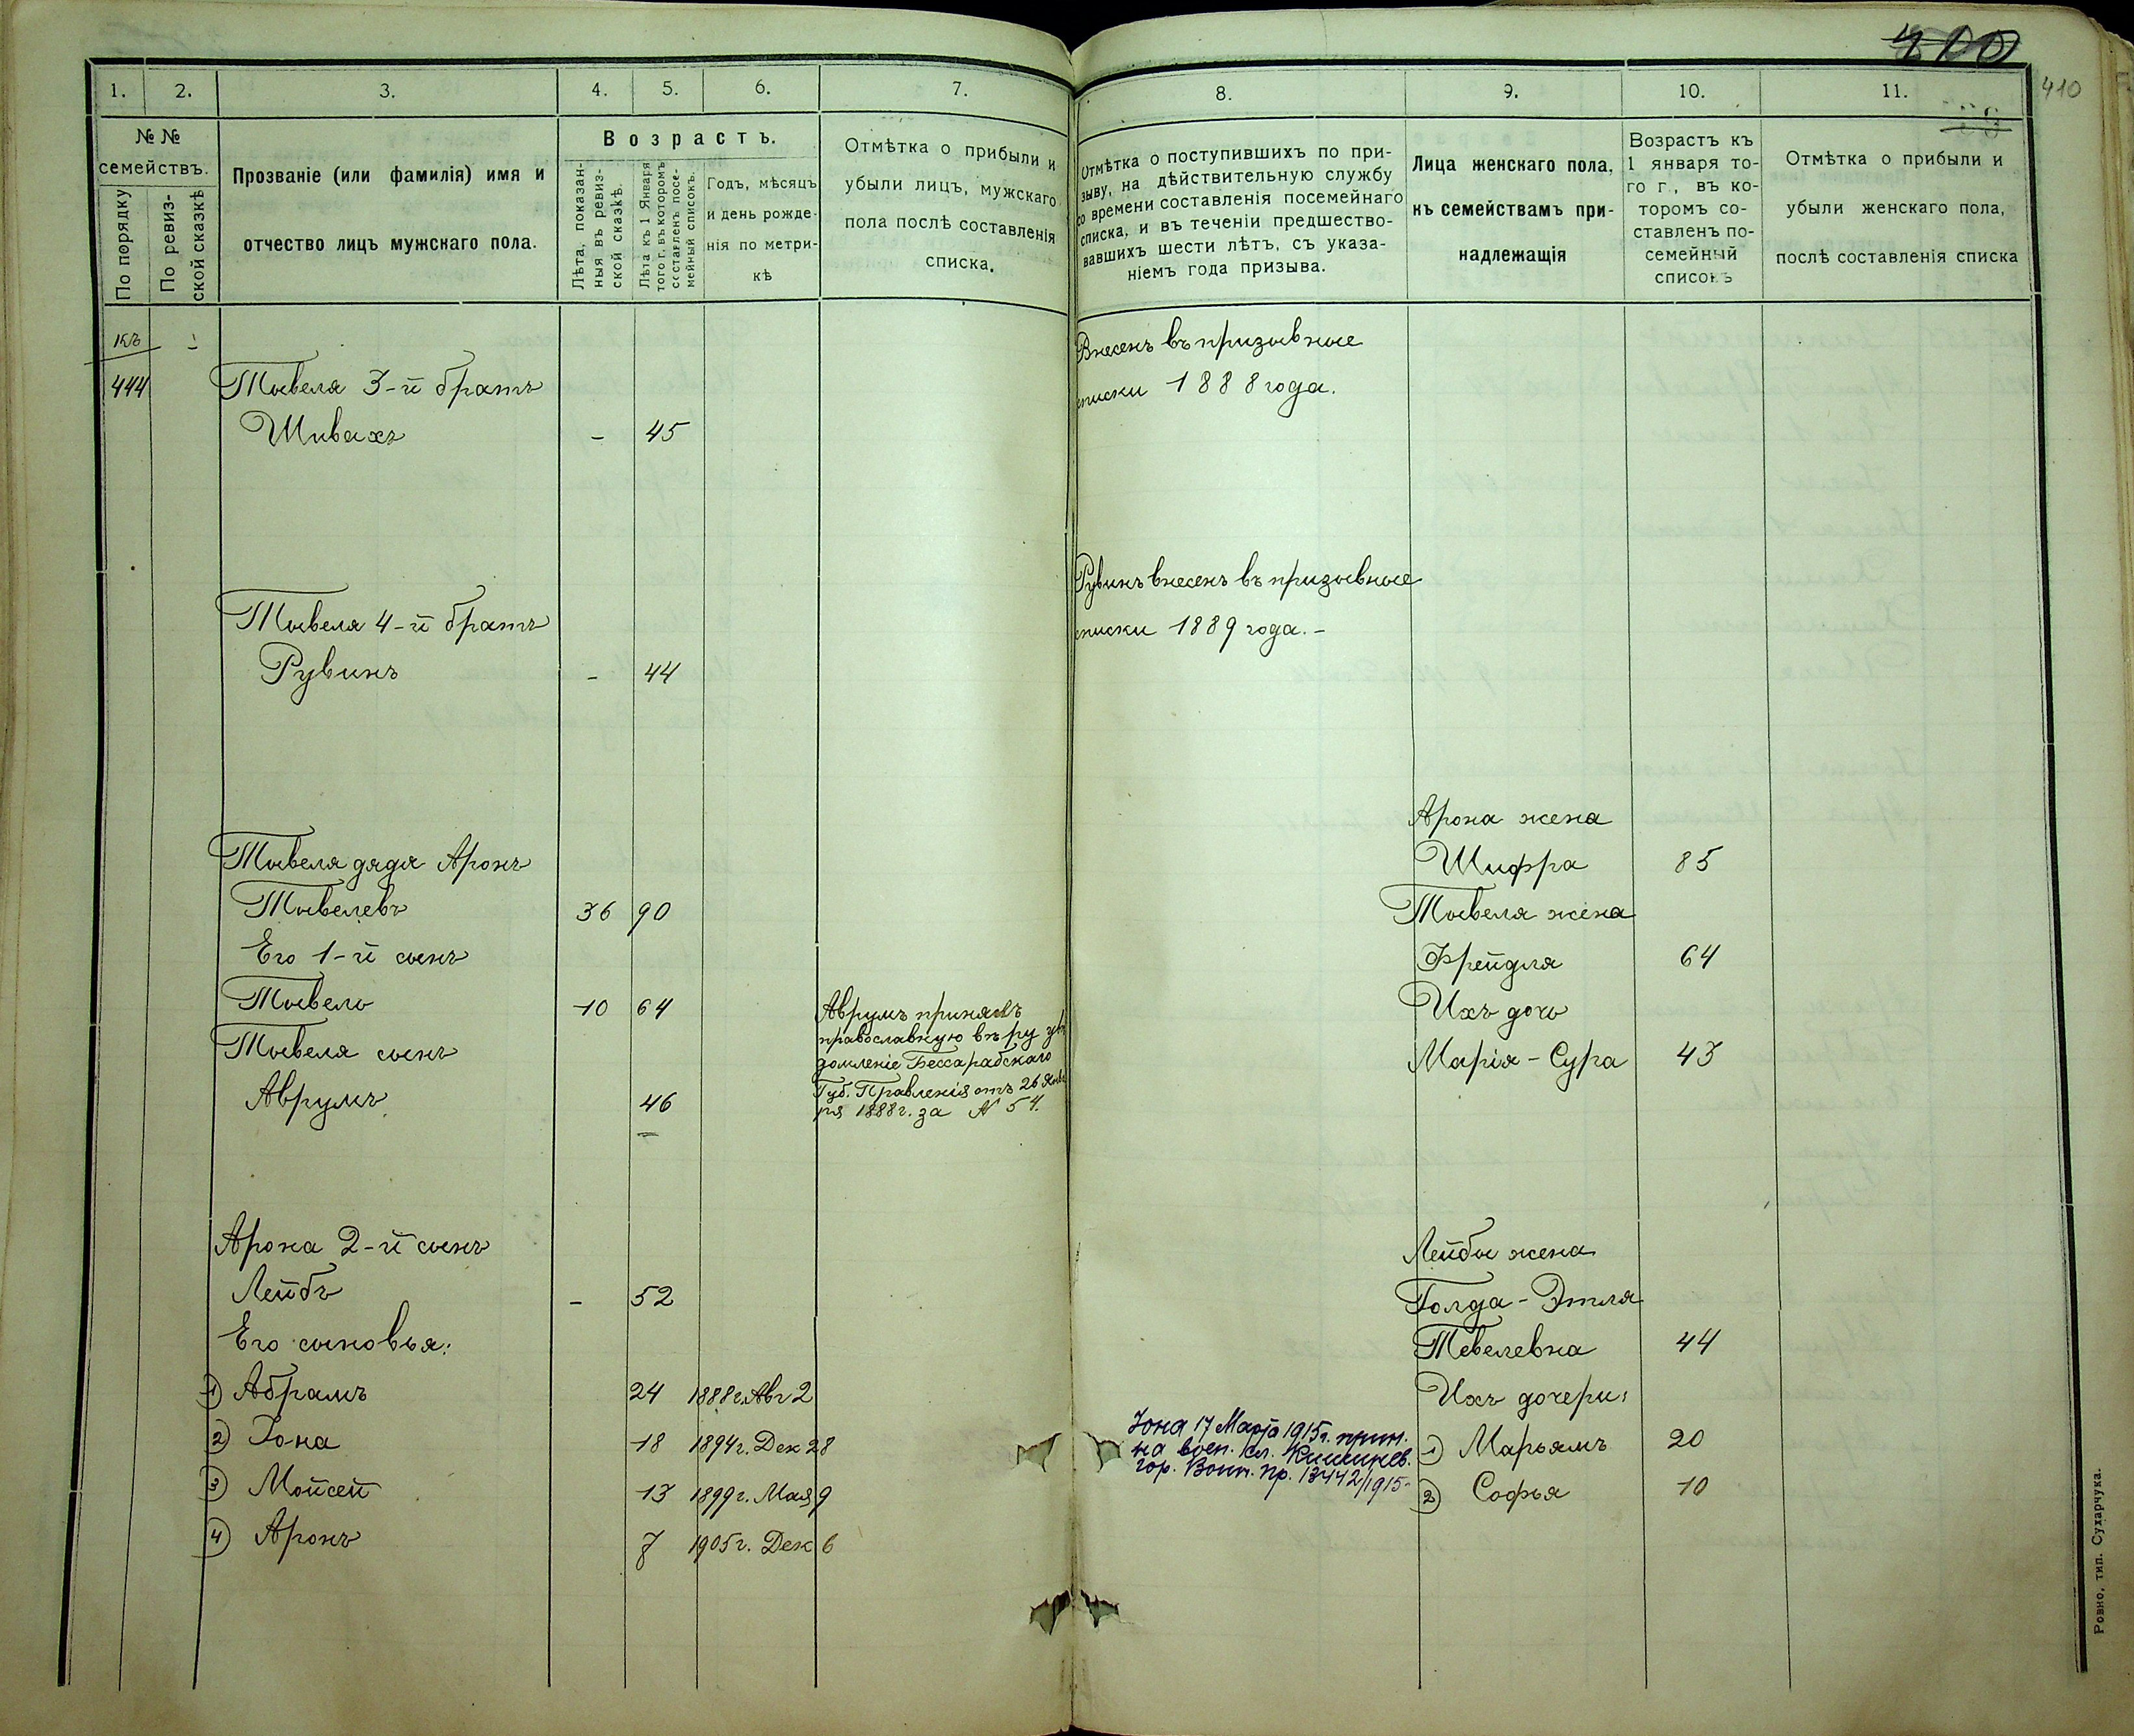 400
410
1.
2.
3.
4.
5.
6.
7.
№ №
семействъ.
По порядку
По ревиз-
ской сказкѣ
Прозваніе (или фамилія) имя и
отчество лицъ мужскаго пола.
Возрастъ.
Лѣта, показан-
ныя въ ревиз-
ской сказкѣ.
Лѣта къ 1 Января
того г. въ которомъ
составленъ посе-
мейный списокъ.
Годъ, мѣсяцъ
и день рожде-
нія по метри-
кѣ
Отмѣтка о прибыли и
убыли лицъ, мужскаго
пола послѣ составленія
списка.
Къ
444
Тывеля 3-й братъ
Шивахъ - 45
Тывеля 4-й братъ
Рувинъ - 44
Тывеля дядя Аронъ
Тывелевъ 36 90
Его 1-й сынъ
Тывело 10 64
Тывеля сынъ
Аврумъ 46
Аврумъ принялъ
православную вѣру увѣ
домленіе Бессарабскаго
Губ. Правленія отъ 26 Янва
ря 1888 г. за № 54.
Арона 2-й сынъ
Лейбъ - 52
Его сыновья:
1) Абрамъ 24 1888 г. Авг 2
2) Іона 18 1894 г. Дек 28
3) Мойсей 13 1899 г. Мая 9
4) Аронъ 7 1905 г. Дек 6
8.
9.
10.
11.
Отмѣтка о поступившихъ по при-
зыву, на дѣйствительную службу
со времени составленія посемейнаго
списка, и въ теченіи предшество-
вавшихъ шести лѣтъ, съ указа-
ніемъ года призыва.
Лица женскаго пола,
къ семействамъ при-
надлежащія
Возрастъ къ
1 января то-
го г., въ ко-
торомъ со-
ставленъ по-
семейный
списокъ
Отмѣтка о прибыли и
убыли женскаго пола,
послѣ составленія списка
Внесенъ въ призывные
списки 1888 года.
Рувинъ внесенъ въ призывные
списки 1889 года. -
Арона жена
Шифра 85
Тывеля жена
Фрейдля 64
Ихъ дочь
Марія-Сура 43
Лейбы жена
Голда-Этля
Тевелевна 44
Ихъ дочери:
1) Марьямъ 20
2) Софья 10
Іона 17 Марта 1915 г. прин.
на воен. сл. Кишинев.
гор. Воин. пр. 13442/1915-
Ровно, тип. Сухарчука.